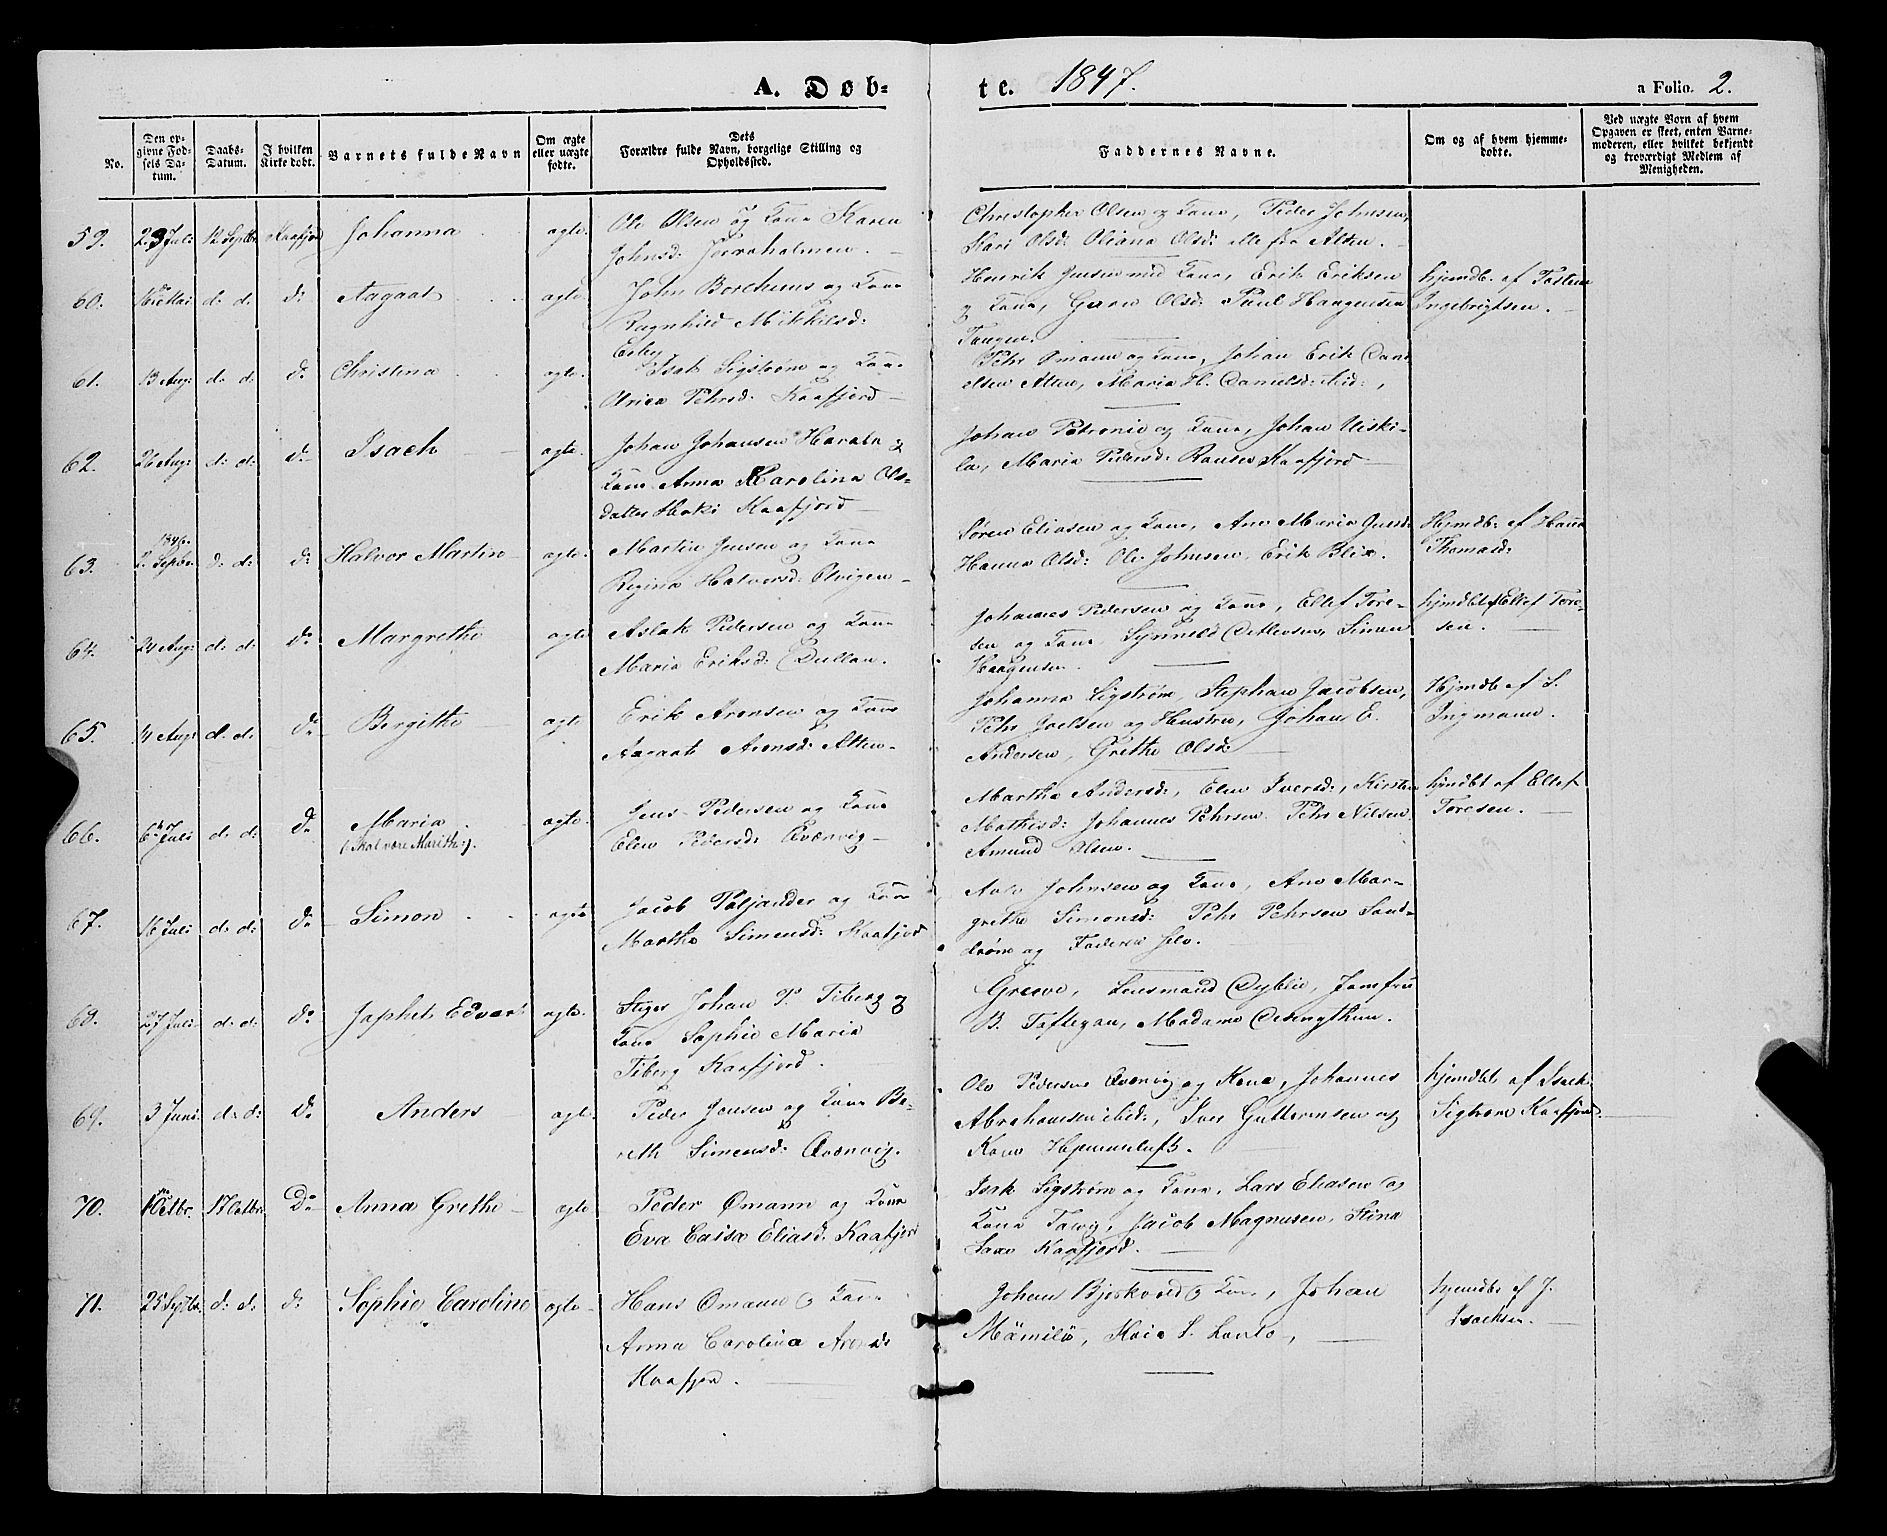 A. Døb-
te. 1847.
a Folio. 2.
No.
Den opgivne Fødsels Datum.
Daabs-Datum.
I hvilken Kirke døbt.
Barnets fulde Navn
Om ægte eller uægte fødte.
Dets Forældre fulde Navn, borgelige Stilling og Opholdssted.
Faddernes Navne.
Om og af hvem hjemmedøbte.
Ved uægte Børn af hvem Opgaven er skeet, enten Barnemoderen, eller hvilket bekjendt og troværdigt Medlem af Menigheden.
59. 23 Juli 12 Septbr Kaafjord Johanna ægte. Ole Olsen og Kone Karen
Johnsd: Jerreholmen.
Christopher Olsen og Kone, Peder Johnsen,
Kari Olsd: Oliana Olsd: alle fra Alten.
60. 16 Mai d: d: d: Aagaat ægte. John Borchenus og Kone
Ragnhild Mikkelsd:
Henrik Jensen med Kone, Erik Eriksen
og Kone, Olsd: Paul Haagensen
Tangen.
hjemdb. af Tosten
Ingebrigtsen.
61. 13 Aug: d: d: d: Christina ægte. Isak Sigstrøm og Kone
Ulrica Pehrsd: Kaafjord
Pehr Ømann og Kone, Johan Erik Dani
elsen Alten, Maria H. Danielsd: ibid:,
62. 26 Aug: d: d: d: Isach ægte. Johan Johansen Harala og
Kone Anna Karolina Ols-
datter Heiki Kaafjord
Johan Petronie og Kone, Johan Niski-
la, Maria Pedersd: Kaafjord
63. 1846. 2 Septbr d: d: d: Halvor Martin ægte. Martin Jensen og Kone
Regina Halvorsd: Elvigen
Søren Eliasen og Kone, Ane Maria
Hanna Olsd: Ole Johnsen, Erik Blix.
Hjmdb. af Hanna
Thomasd:
64. 24 Aug: d: d: d: Margrethe ægte Aslak Pedersen og Kone
Maria Eriksd: Bullen.
Johannes Pedersen og Kone, Ellef Tore-
sen og Kone, Detlevsen, Simon
Haagensen.
hjmdbt af Ellef Tore-
sen.
65. 4 Aug: d: d: d: Bergithe ægte Erik Aronsen og Kone
Aagaat Aronsd: Alten
Johanna Sigstrøm, Stephan Jacobsen,
Pehr Joelsen og Hustru, Johan E.
Andersen, Grethe Olsd:
Hjmdb. af S.
Ingmann.
66. 6 Juli d: d: d: Maria
(skal være Marithe). ægte. Jens Pedersen og Kone
Elen Pedersd: Qvænvig
Martha Andersd:, Elen Iversd:, Kirsten
Mathisd: Johannes Pehrsen Pehr Nilsen
Amund Olsen.
hjmdbt af Ellef
Toresen.
67. 16 Juli d: d: d: Simon ægte Jacob Poljander og Kone
Martha Simensd: Kaafjord
John­sen og Kone, Ane Mar-
grethe Simonsd: Pehr Pehrsen Sand-
strøm og Faderen selv.
68. 27 Juli d: d: d: Japhet Edvart ægte. Stiger Johan P. Tiberg og
Kone Sophie Maria
Tiberg Kaafjord.
Greeve, Lensmand Dyblie, Jomfru
B. Toftegan, Madame
69. 3 Juni d: d: d: Anders ægte. Peder Jensen og Kone Be-
reth Simensd: Qvænvig.
Ole Pedersen Qvænvig og Kone, Johannes
Abrahamsen ibid:, Iver Guttormsen og
Kone Hjemmeluft.
hjemdbt af Isack
Sigtrøm Kaafjord.
70. 1 Octbr. 17 Octbr. Do Anna Grethe ægte Peder Ømann og Kone
Eva Caisa Eliasd: Kaafjord
Isak Sigstrøm og Kone, Lars Eliasen og
Kone Tavig, Jacob Magnusen, Stina
Kaafjord.
71. 25 Septbr. d: d: d: Sophie Caroline ægte Hans Ømann og Kone
Anna Carolina Aronsd:
Kaafjord.
Johan Bjerkvold og Kone, Johan
Mämilö, Kaia S. Lanto,
hjemdb: af J.
Isacksen.